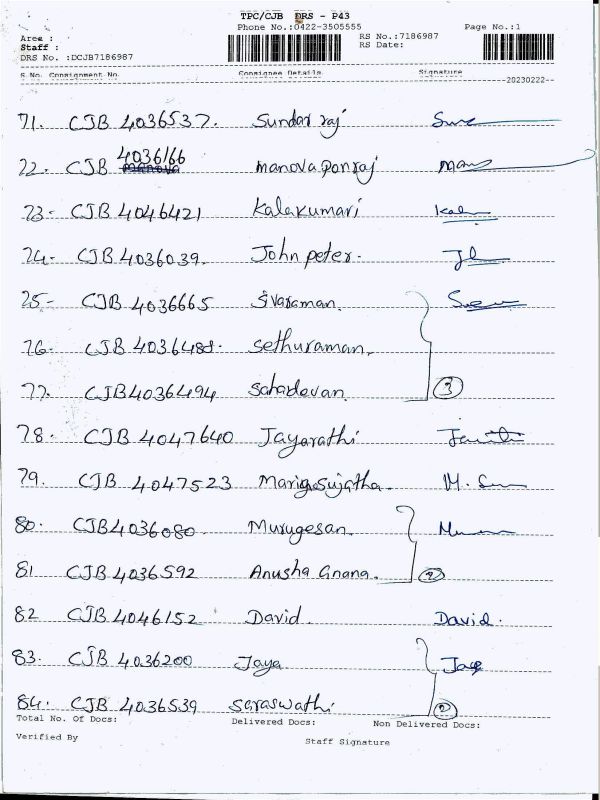 TPC/CJB DRS - P43
Phone No.:0422-3505555
Page No.:1
Area :
Staff :
RS No.:7186987
RS Date:
DRS No. :DCJB7186987
S.No. Consignment No. Consignee Details Signature
20230222
71. CJB 4036537. Sundar raj
72. CJB 4036166 manova ponraj
73- CJB 4046421 Kalakumari
74- CJB 4036039. John peter.
75- CJB 4036665 Sivaraman.
76- CJB 4036488- Sethuraman.
77. CJB4036494 Sahadevan. 3
78. CJB 4047640 Jayarathi
79. CJB 4047523 Mariasujatha. M. S
80. CJB4036080 Murugesan.
81 CJB 4036592 Anusha Gnana. 2
82 CJB 4046152 David. David.
83. CJB 4036200 Jaya Jaya
84. CJB 4036539 Saraswathi 2
Total No. Of Docs: Delivered Docs: Non Delivered Docs:
Verified By Staff Signature